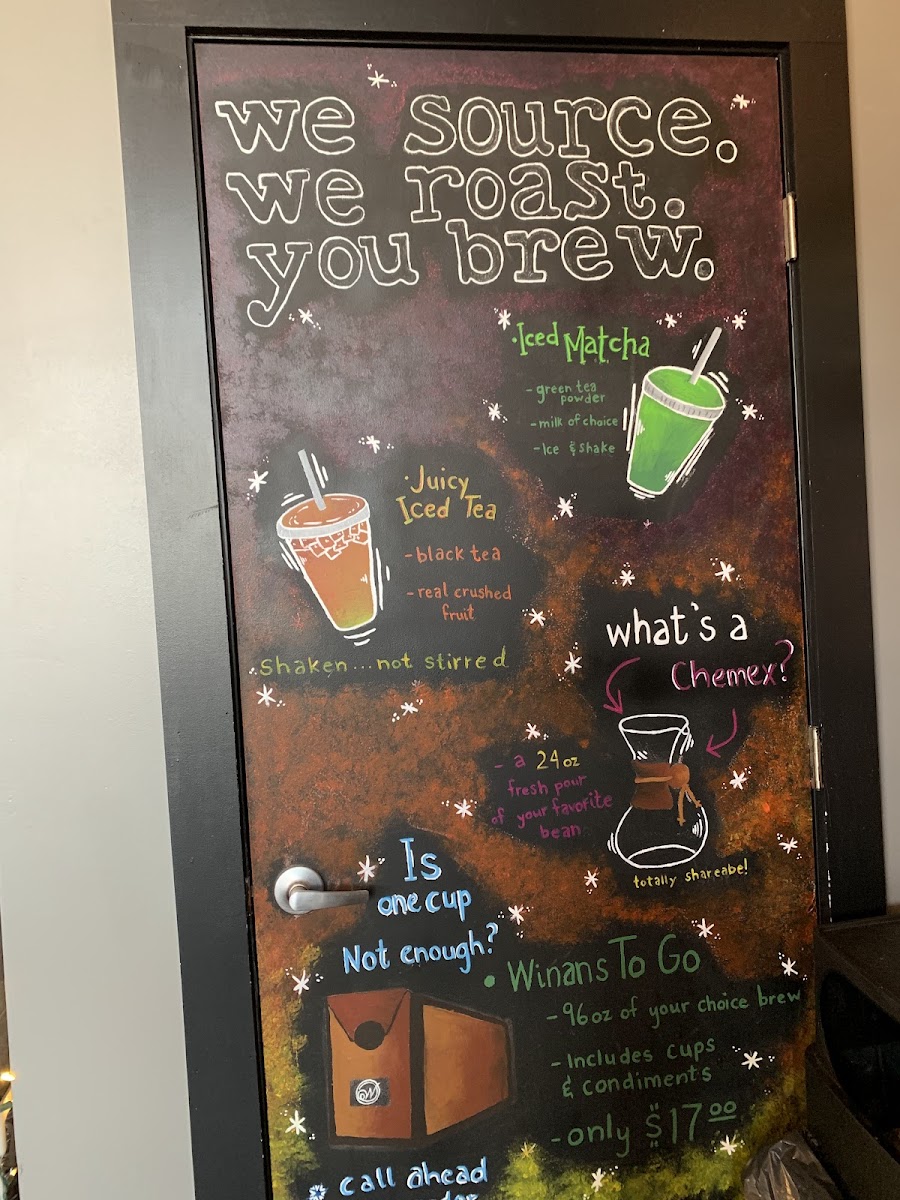 we source.
we roast.
you brew.
·Iced Matcha
- green tea
powder
- milk of choice
- Ice & shake
·Juicy
Iced Tea
- black tea
- real crushed
fruit
Shaken...not stirred
what's a
Chemex?
- a 24oz
fresh pour
of your favorite
bean
totally shareabe!
Is
one cup
Not enough?
• Winans To Go
- 96oz of your choice brew
- Includes cups
& condiments
- only $17.00
W
* call ahead